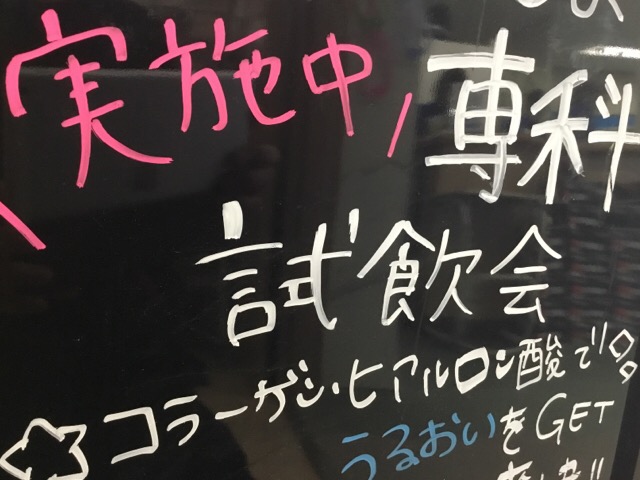 実施中
専科
試飲会
コラーゲン・ヒアルロン酸で
うるおいをGET